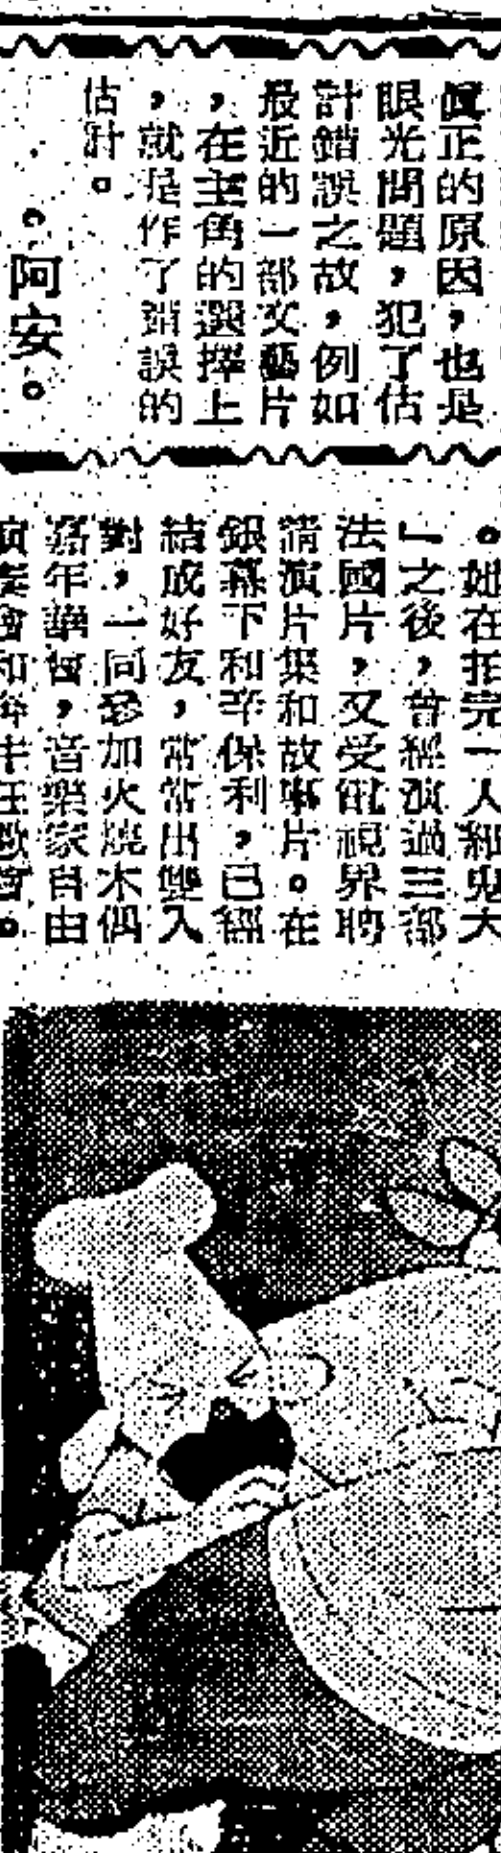 真正的原因，也是
眼光問題，犯了估
計錯誤之故，例如
最近的一部文藝片
，在主角的選擇上
，就是作了錯誤的
估計。
。阿安。
。她在拍完一人細鬼大
」之後，曾經演過三部
法國片，又受電視界聘
請演片集和故事片。在
銀幕下和辛保利，已經
結成好友，常常出雙入
對，一同參加火燒木偶
嘉年華會，音樂家自由
演奏會和奔牛狂歡會。